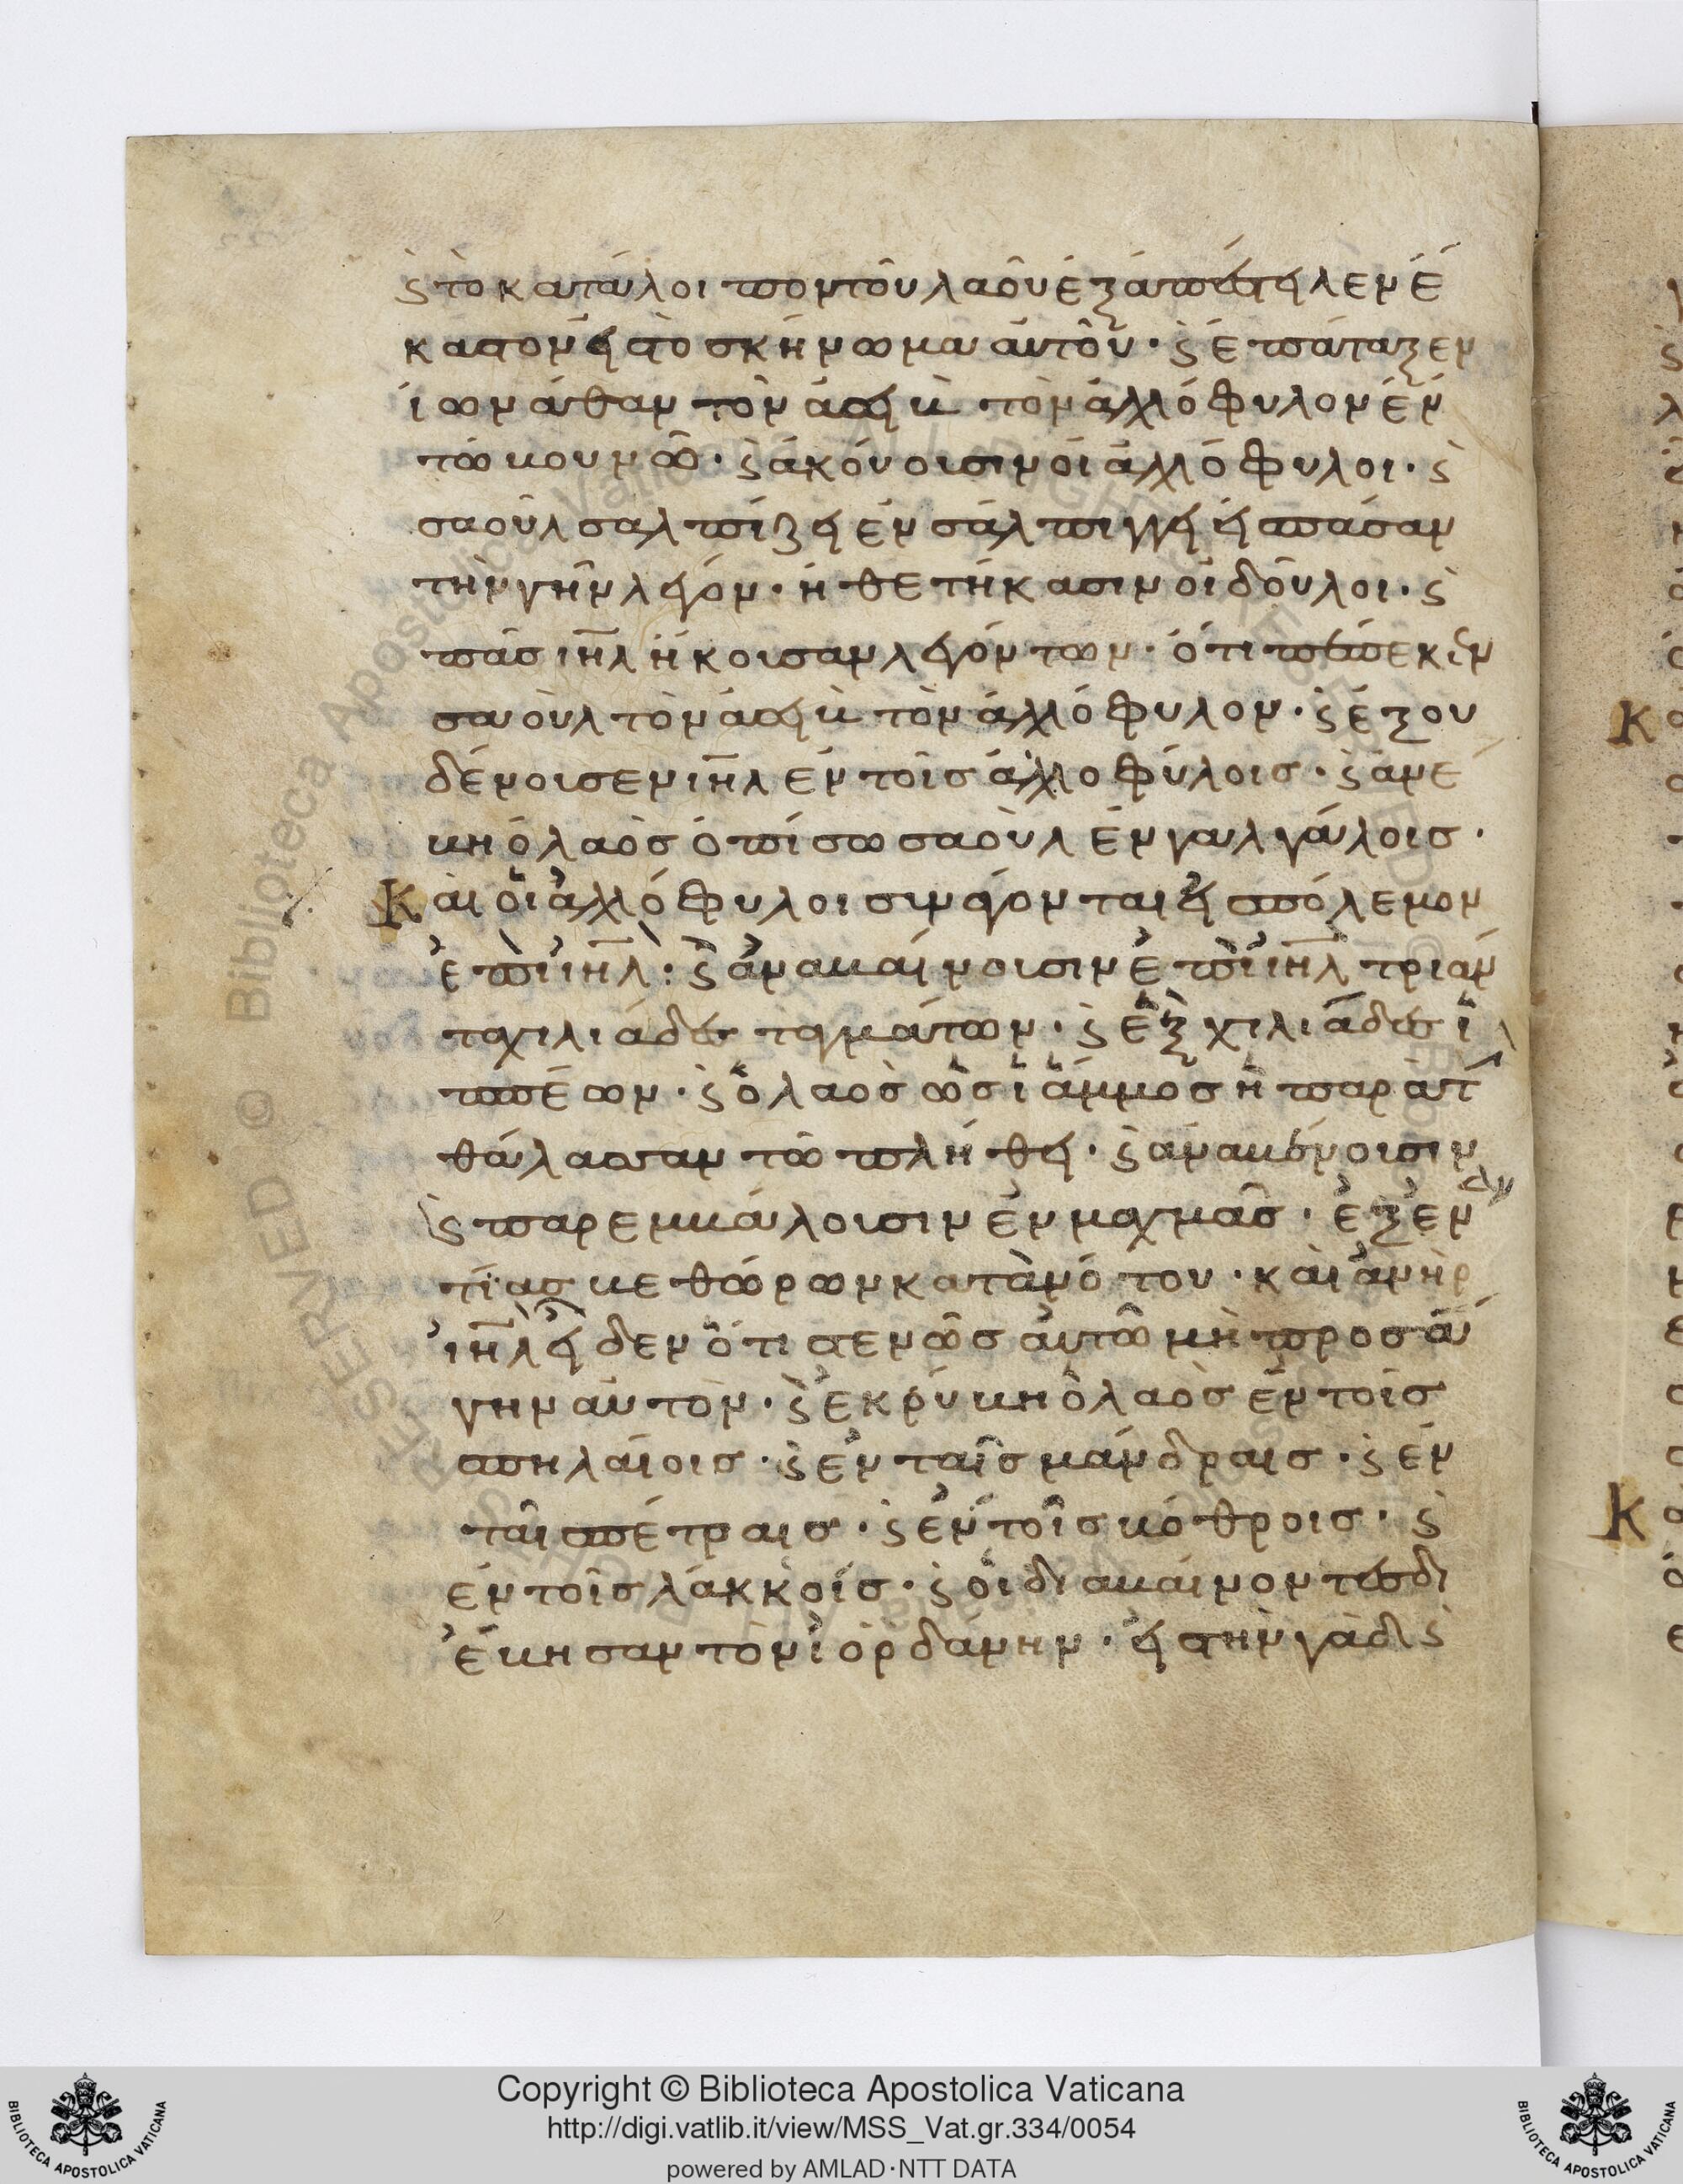 ϛ τὸ κατάλοιπον τοῦ λαοῦ ἐξαπέστειλεν ἕ
καστον εἰς τὸ σκήνωμα αὐτοῦ· ϛ ἐπάταξεν
ἰωνάθαν τὸν νασεὶβ τὸν ἀλλόφυλον ἐν
τῶ βουνῶ· ϛ ἀκούουσιν οἱ ἀλλόφυλοι· ϛ
σαοῦλ σαλπίζει ἐν σάλπιγγι εἰς πάσαν
τὴν γῆν λέγον· ἠθετήκασιν οἱ δοῦλοι· ϛ
πᾶσ ιηλ ἤκουσαν λεγόντων· ὅτι πέπεκεν
σαοὺλ τὸν νασεὶβ τὸν ἀλλόφυλον· ϛ ἐξου
δένουσεν ιηλ ἐν τοῖσ ἀλλοφύλοισ· ϛ ἀνέ
βη ὁ λαὸσ ὀπίσω σαοὺλ ἐν γαλγάλοισ·
Καὶ οἱ ἀλλόφυλοι συνάγονται εἰς πόλεμον
ἐπὶ ιηλ· ϛ ἀναβαίνουσιν ἐπὶ ιηλ τριάν
τα χιλιάδες ταγμάτων· ϛ ἓξ χιλιάδες ἱ
ππέων· ϛ ὁ λαὸσ ὡσὶ ἄμμοσ ἡ παρὰ τ
θάλασσαν τῶ πλήθει· ϛ ἀναβένουσιν
ϛ παρεμβάλουσιν ἐν μαχμᾶσ· ἐξεν
τίασ βεθώρων κατὰ νότου· καὶ ἀνὴρ
ιηλ εἶδεν ὅτι στενῶσ αὐτῶ μὴ προσά
γην αὐτὸν· ϛ ἐκρύβη ὁ λαὸσ ἐν τοῖσ
σπηλαίοισ· ϛ ἐν ταῖσ μάνδραισ· ϛ ἐν
ταῖς πέτραισ· ϛ ἐν τοῖσ βόθροισ· ϛ
ἐν τοῖσ λάκκοισ· ϛ οἱ διαβαίνοντες δι
έβησαν τὸν ἰορδάνην· εἰς τὴν γὰδ ϛ
Copyright © Biblioteca Apostolica Vaticana
http://digi.vatlib.it/view/MSS_Vat.gr.334/0054
powered by AMLAD·NTT DATA